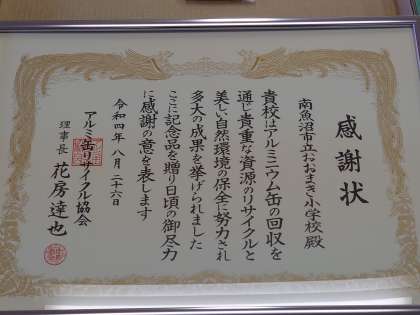 感謝状
南魚沼市立おおまき小学校 殿
貴校はアルミニウム缶の回収を
通じ貴重な資源のリサイクルと
美しい自然環境の保全に努力され
多大の成果を挙げられました
ここに記念品を贈り日頃の御尽力
に感謝の意を表します
令和四年八月二十六日
アルミ缶リサイクル協会
理事長 花房達也